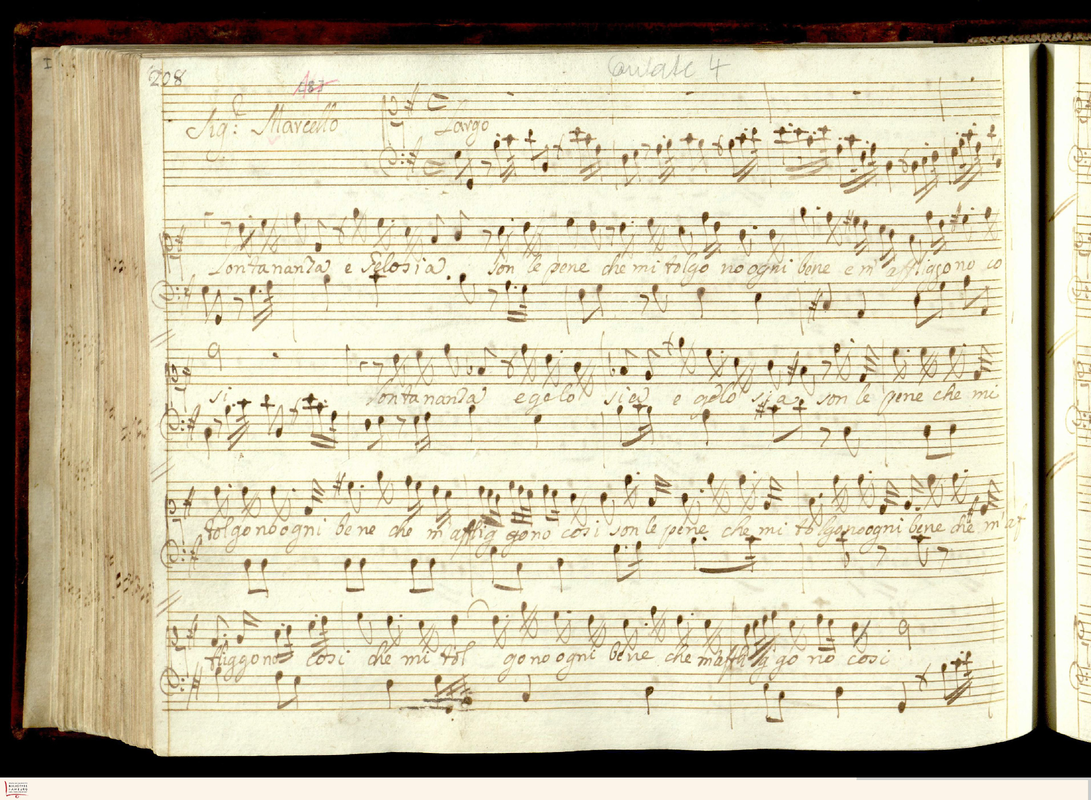 208
187
Cantate 4
Sig.r Marcello
Largo
Lontananza e Gelosia. Son le pene che mi tolgo no ogni bene e m'affliggono co
si lontananza e gelo sia e gelo sia son le pene che mi
tolgono ogni bene che m'afflig gono cosi son le pene che mi tolgono ogni bene che m'af
fliggono cosi che mi tol gono ogni bene che m'afflig go no cosi